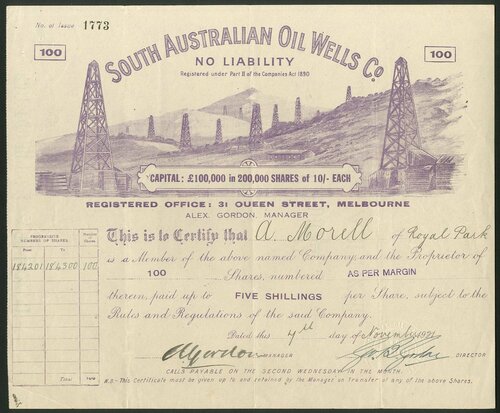 No. of Issue 1773
100
100
SOUTH AUSTRALIAN OIL WELLS Co
NO LIABILITY
Registered under Part II of the Companies Act 1890
CAPITAL: £100,000 in 200,000 SHARES of 10/- EACH
REGISTERED OFFICE: 31 QUEEN STREET, MELBOURNE
ALEX. GORDON, MANAGER
This is to Certify that A. Morell of Royal Park
is a Member of the above named Company, and the Proprietor of
100 Shares, numbered AS PER MARGIN
therein, paid up to FIVE SHILLINGS per Share, subject to the
Rules and Regulations of the said Company.
Dated this 4th day of November 1921
PROGRESSIVE NUMBERS OF SHARES
Number of Shares
From To
184201 184300 100
Total
AGordon MANAGER
DIRECTOR
CALLS PAYABLE ON THE SECOND WEDNESDAY IN THE MONTH.
N.B - This Certificate must be given up to and retained by the Manager on Transfer of any of the above Shares.